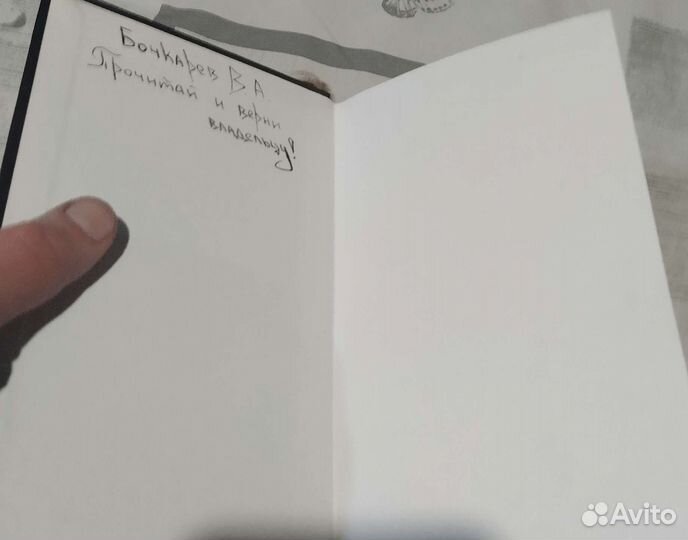 Бочкарев В А.
Прочитай и верни
владельцу!
Avito